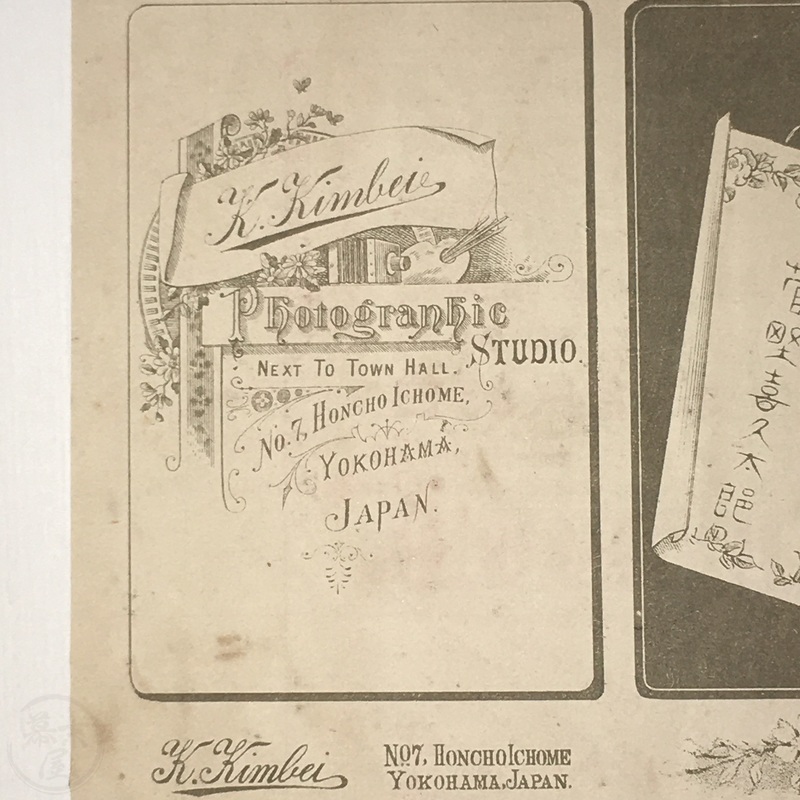 K. Kimbei
Photographic
STUDIO.
NEXT TO TOWN HALL.
No. 7, HONCHO ICHOME,
YOKOHAMA,
JAPAN.
K. Kimbei
No 7, HONCHO ICHOME
YOKOHAMA, JAPAN.